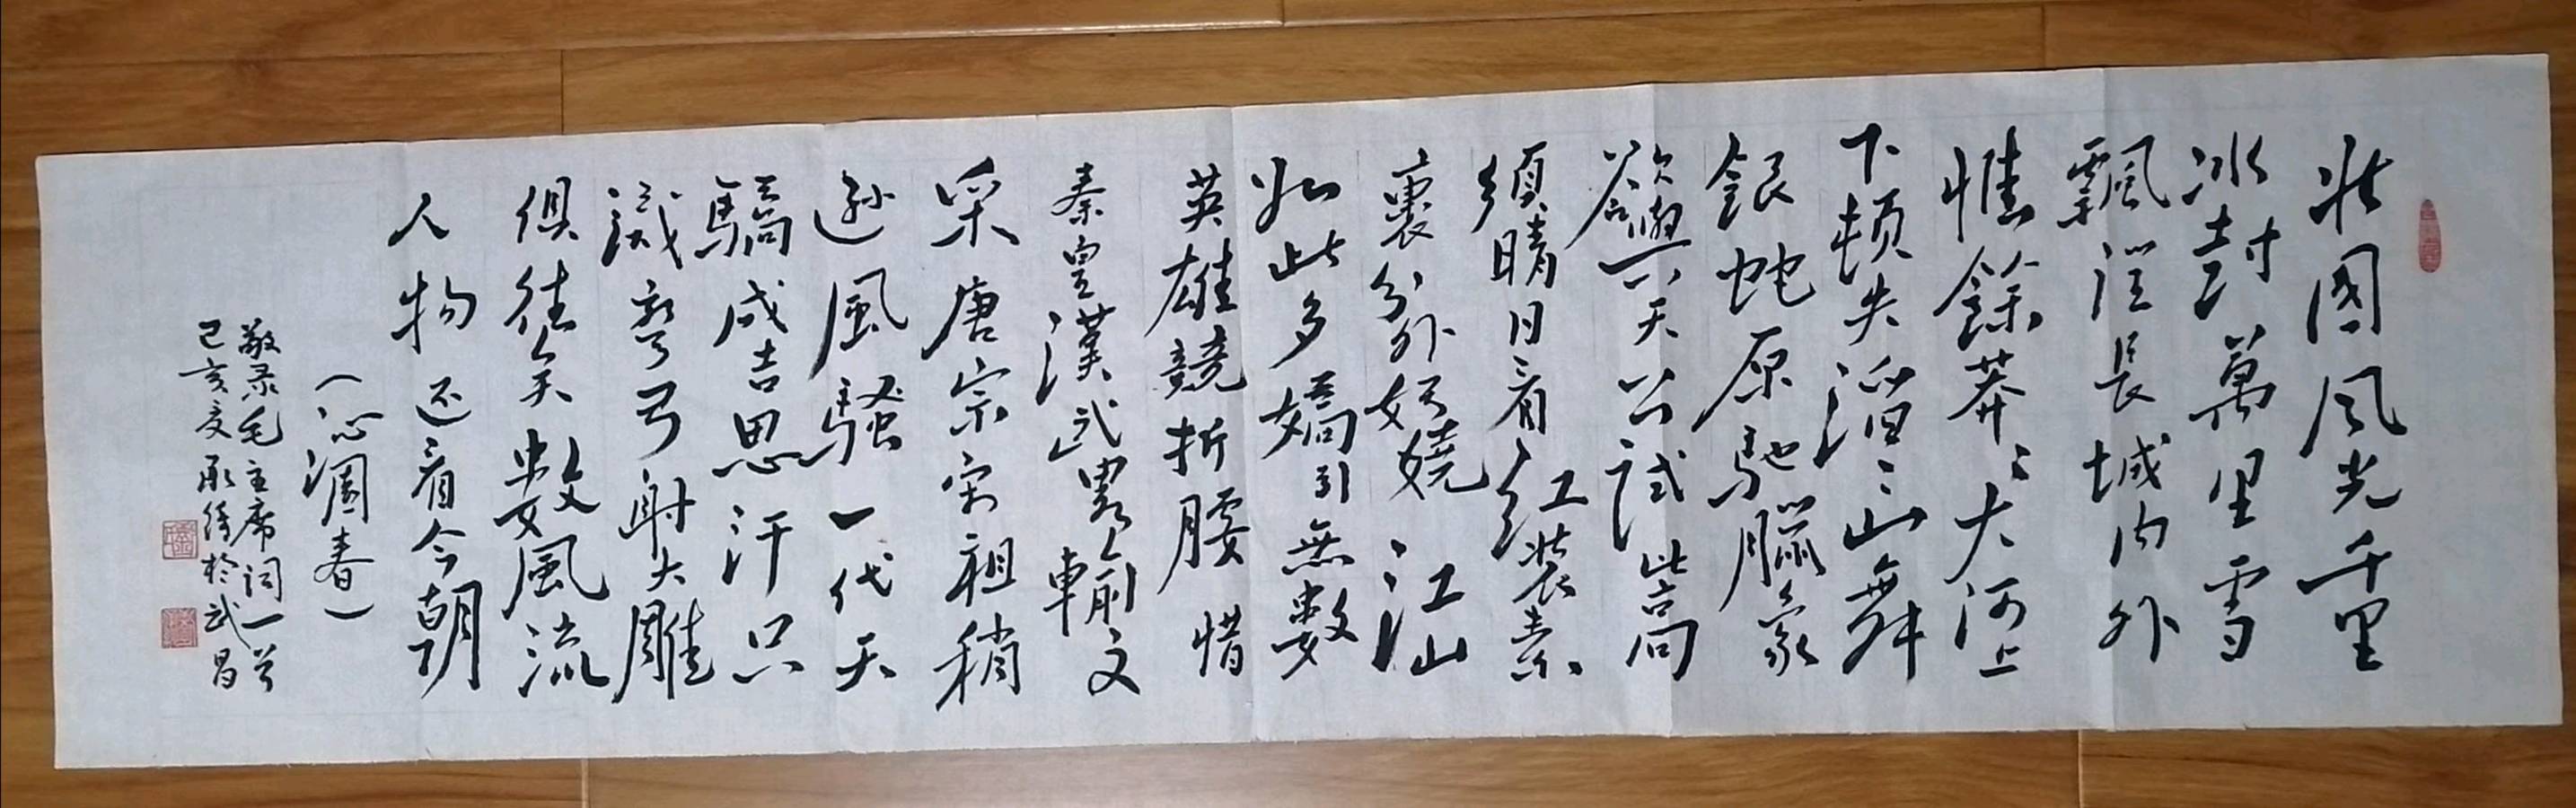 北國風光千里
冰封萬里雪
飄望長城內外
惟餘莽々大河上
下頓失滔々山舞
銀蛇原馳臘象
欲與天公試比高
須晴日看紅裝素
裹分外妖嬈江山
如此多嬌引無數
英雄競折腰惜
秦皇漢武畧輸文
采唐宗宋祖稍
遜風騷一代天
驕成吉思汗只
識彎弓射大雕
俱往矣數風流
人物还看今朝
(沁園春)
敬录毛主席词一首
己亥夏 於武昌